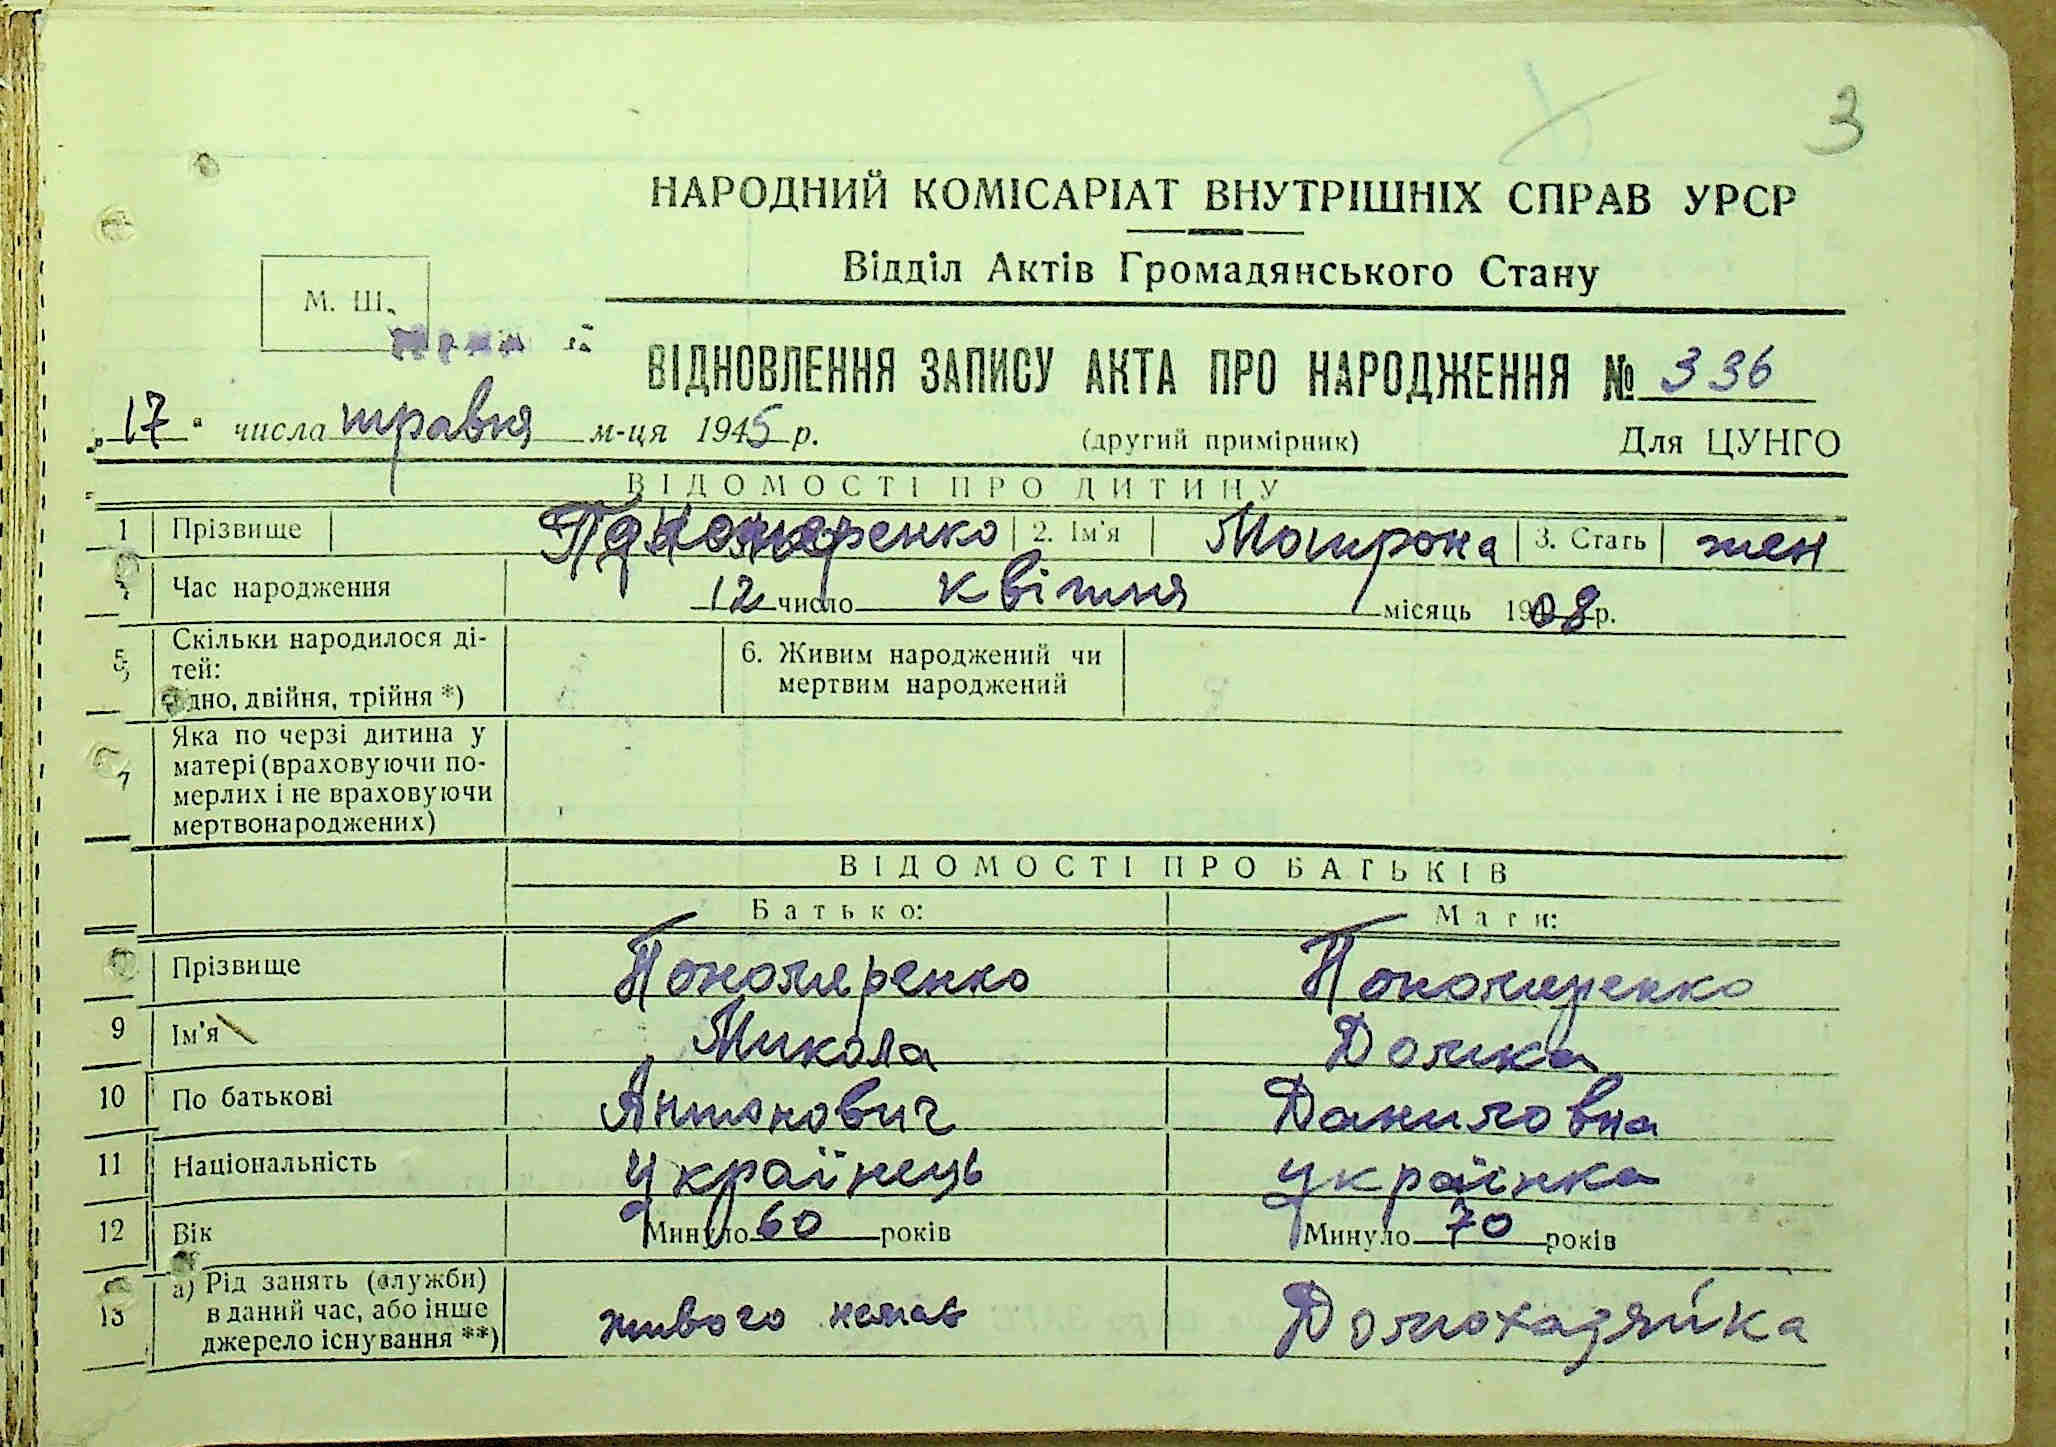 3
НАРОДНИЙ КОМІСАРІАТ ВНУТРІШНІХ СПРАВ УРСР
Відділ Актів Громадянського Стану
М. Ш.
ВІДНОВЛЕННЯ ЗАПИСУ АКТА ПРО НАРОДЖЕННЯ № 336
„17" числа травня м-ця 1945 р. (другий примірник) Для ЦУНГО
ВІДОМОСТІ ПРО ДИТИНУ
1 Прізвище Пономаренко 2. Ім'я Мотрона 3. Стать жен
Час народження 12 число квітня місяць 1908 р.
5 Скільки народилося ді-
тей:
одно, двійня, трійня *)
6. Живим народжений чи
мертвим народжений
7 Яка по черзі дитина у
матері (враховуючи по-
мерлих і не враховуючи
мертвонароджених)
ВІДОМОСТІ ПРО БАТЬКІВ
Батько: Мати:
Прізвище Пономаренко Пономаренко
9 Ім'я Микола Домка
10 По батькові Антонович Даниловна
11 Національність українець українка
12 Вік Минуло 60 років Минуло 70 років
13 а) Рід занять (служби)
в даний час, або інше
джерело існування **)
живого немає Домохазяйка